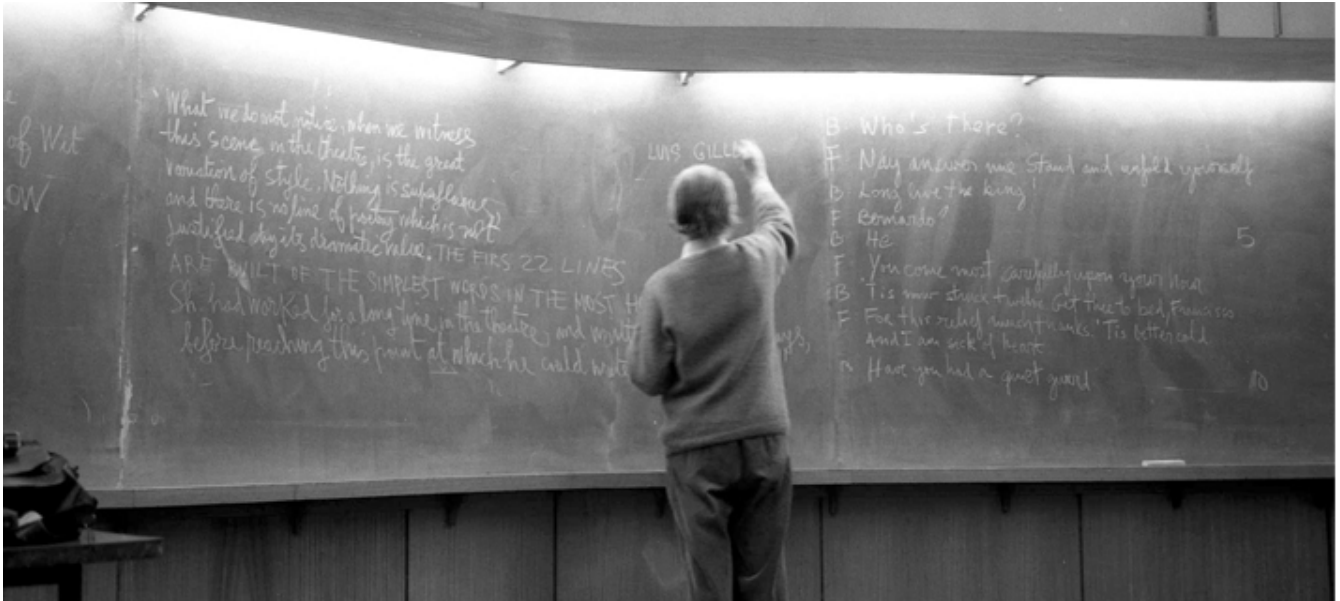 e
of Wit
OW
What we do not notice, when we witness
this scene in the theatre, is the great
variation of style. Nothing is superfluous
and there is no line of poetry which is not
justified by its dramatic value. THE FIRS 22 LINES
ARE BUILT OF THE SIMPLEST WORDS IN THE MOST H
Sh. had worked for a long time in the theatre, and
before reaching this point at which he could write
LUIS GILL
B Who's there?
F Nay answer me Stand and unfold yourself
B Long live the king
F Bernardo?
B He 5
F You come most carefully upon your hour
B 'Tis now struck twelve Get thee to bed, Francisco
F For this relief much thanks. 'Tis bitter cold
And I am sick of heart
B Have you had a quiet guard 10